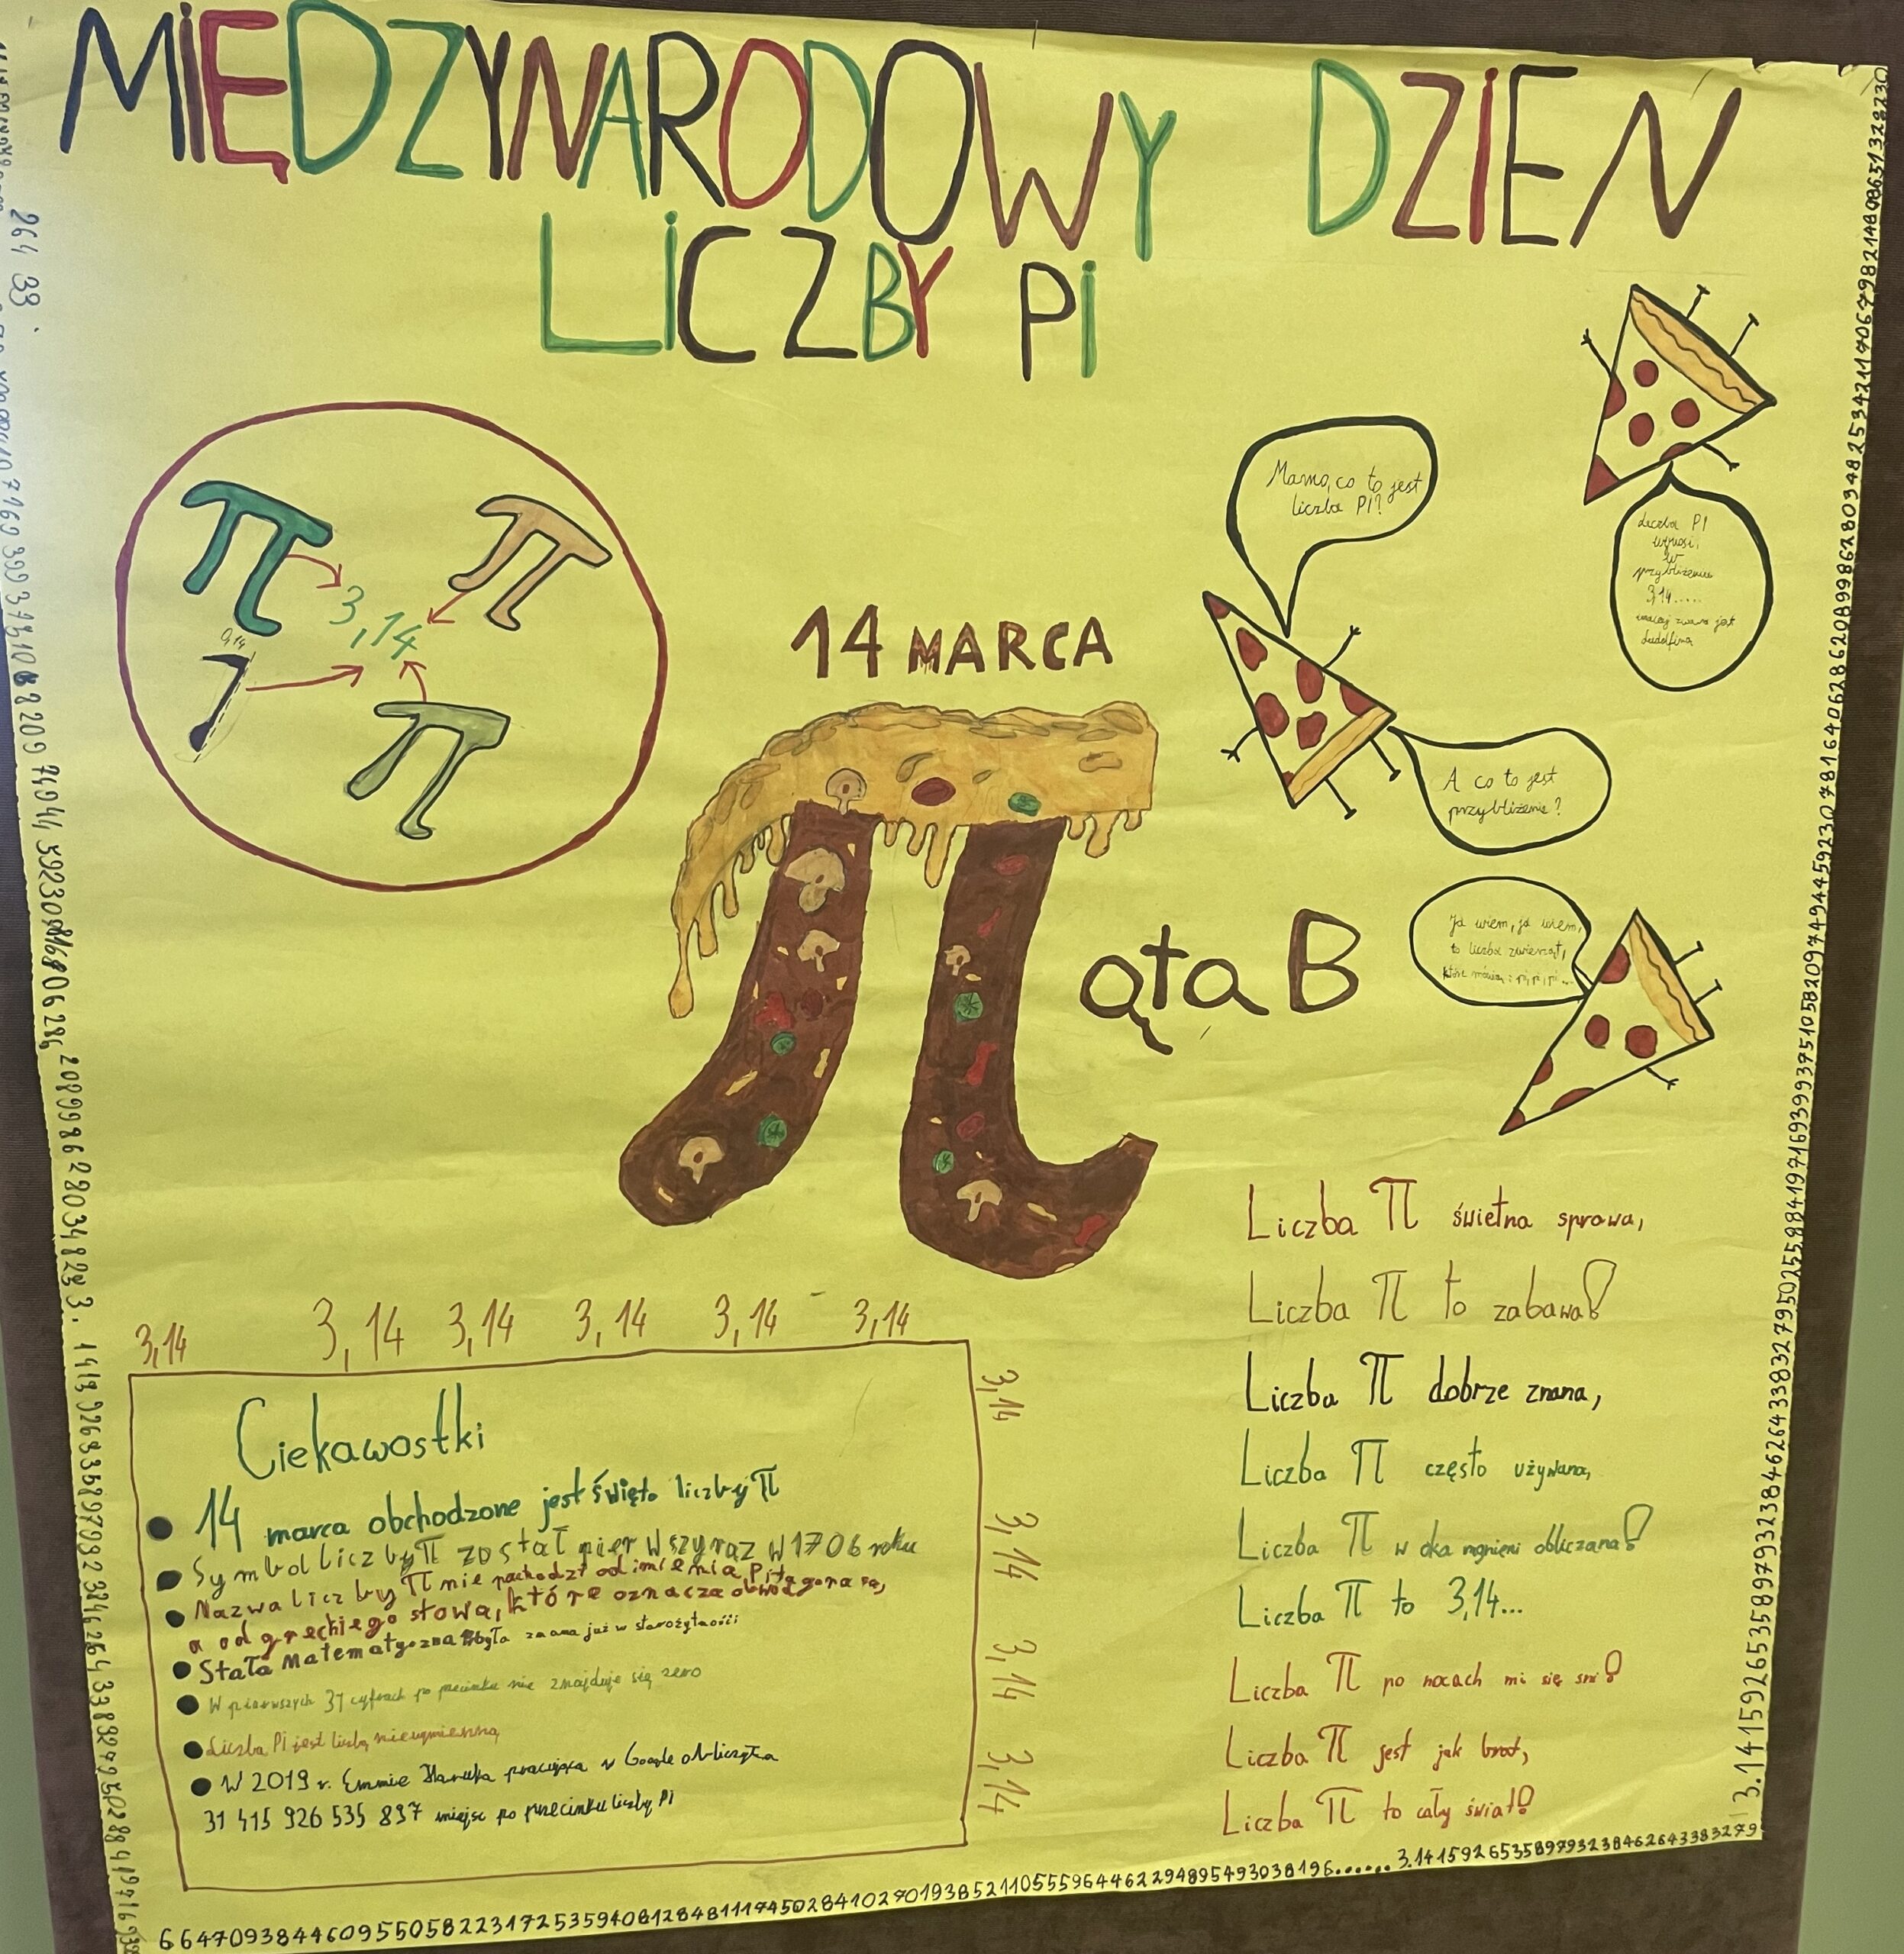 MIĘDZYNARODOWY DZIEN
LICZBY PI
3,14
0,14
14 MARCA
Mamo, co to jest
liczba PI?
Liczba PI
wynosi,
w
przybliżeniu
3,14.....
inaczej zwana jest
Ludolfiną
A co to jest
przybliżenie?
π ąta B
Ja wiem, ja wiem,
to liczba zwierząt,
które mówią: pi, pi, pi ...
Liczba π świetna sprawa,
Liczba π to zabawa!
Liczba π dobrze znana,
Liczba π często używana,
Liczba π w oka mgnieni obliczana!
Liczba π to 3,14...
Liczba π po nocach mi się sni!
Liczba π jest jak brat,
Liczba π to cały świat!
3,14 3,14 3,14 3,14 3,14 3,14
3,14
3,14
3,14
3,14
Ciekawostki
14 marca obchodzone jest święto liczby π
Symbol liczby π został pierwszy raz w 1706 roku
Nazwa liczby π nie pochodzi od imienia Pitagorasa,
a od greckiego słowa, które oznacza obwód
Stała Matematyczna była znana już w starożytności
W pierwszych 31 cyfrach po przecinku nie znajduje się zero
Liczba Pi jest liczbą niewymierną
W 2019 r. Emmie Haruka pracująca w Google obliczyła
31 415 926 535 897 miejsc po przecinku liczby PI
3.1415926535897932384626433832795025588419716939937510582097494459230781640628620899862803482534211706798214808651328230
664709384460955058223172535940812848111745028410270193852110555964462294895493038196...... 3.14159265358979323846264338 3279